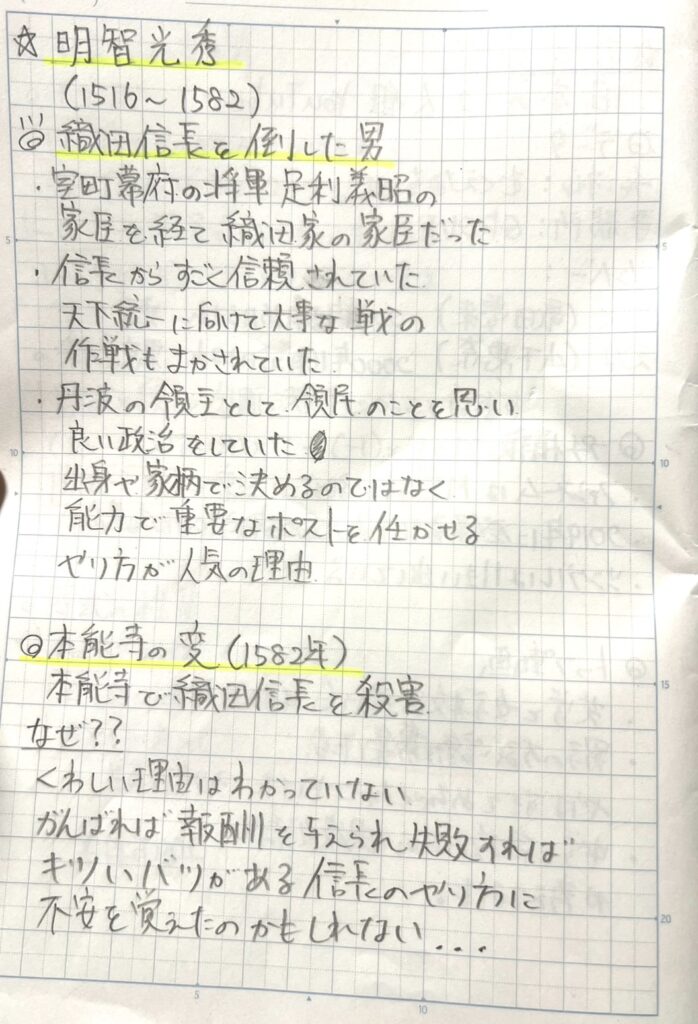 ☆ 明智光秀
(1516～1582)
◎ 織田信長を倒した男
・室町幕府の将軍 足利義昭の
家臣を経て 織田家の家臣だった
・信長から すごく信頼されていた
天下統一に向けて大事な戦の
作戦もまかされていた
・丹波の領主として 領民のことを思い
良い政治をしていた
出身や家柄で決めるのではなく
能力で重要なポストを任かせる
やり方が人気の理由
◎本能寺の変(1582年)
本能寺で織田信長を殺害
なぜ??
くわしい理由はわかっていない
がんばれば報酬を与えられ失敗すれば
キツいバツがある信長のやり方に
不安を覚えたのかもしれない...
5
10
15
20
5
10